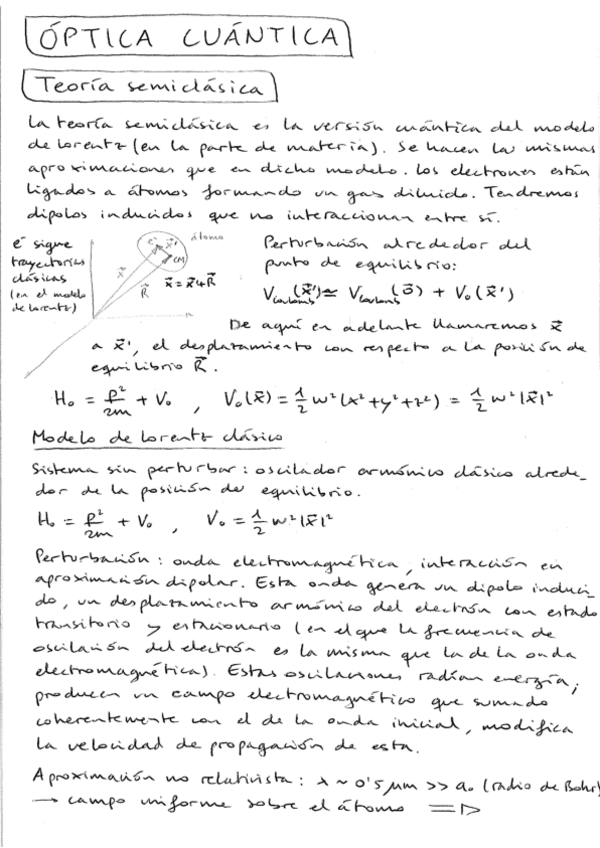 ÓPTICA CUÁNTICA
Teoría semiclásica
La teoría semiclásica es la versión cuántica del modelo
de Lorentz (en la parte de materia). Se hacen las mismas
aproximaciones que en dicho modelo. Los electrones están
ligados a átomos formando un gas diluido. Tendremos
dipolos inducidos que no interaccionan entre sí.
e⁻ sigue
trayectorias
clásicas
(en el modelo
de Lorentz)
e⁻ x⃗' átomo
CM
x⃗
R⃗
x⃗ = x⃗' + R⃗
Perturbación alrededor del
punto de equilibrio:
V_coulomb(x⃗') ≃ V_coulomb(0⃗) + V₀(x⃗')
De aquí en adelante llamaremos x⃗
a x⃗', el desplazamiento con respecto a la posición de
equilibrio R⃗.
H₀ = p²/2m + V₀ , V₀(x⃗) = 1/2 w²(x²+y²+z²) = 1/2 w²|x⃗|²
Modelo de Lorentz clásico
Sistema sin perturbar: oscilador armónico clásico alrede-
dor de la posición de equilibrio.
H₀ = p²/2m + V₀ , V₀ = 1/2 w²|x⃗|²
Perturbación: onda electromagnética, interacción en
aproximación dipolar. Esta onda genera un dipolo induci-
do, un desplazamiento armónico del electrón con estado
transitorio y estacionario (en el que la frecuencia de
oscilación del electrón es la misma que la de la onda
electromagnética). Estas oscilaciones radían energía;
producen un campo electromagnético que sumado
coherentemente con el de la onda inicial, modifica
la velocidad de propagación de esta.
Aproximación no relativista: λ ~ 0'5 μm >> a₀ (radio de Bohr)
→ campo uniforme sobre el átomo ⇒